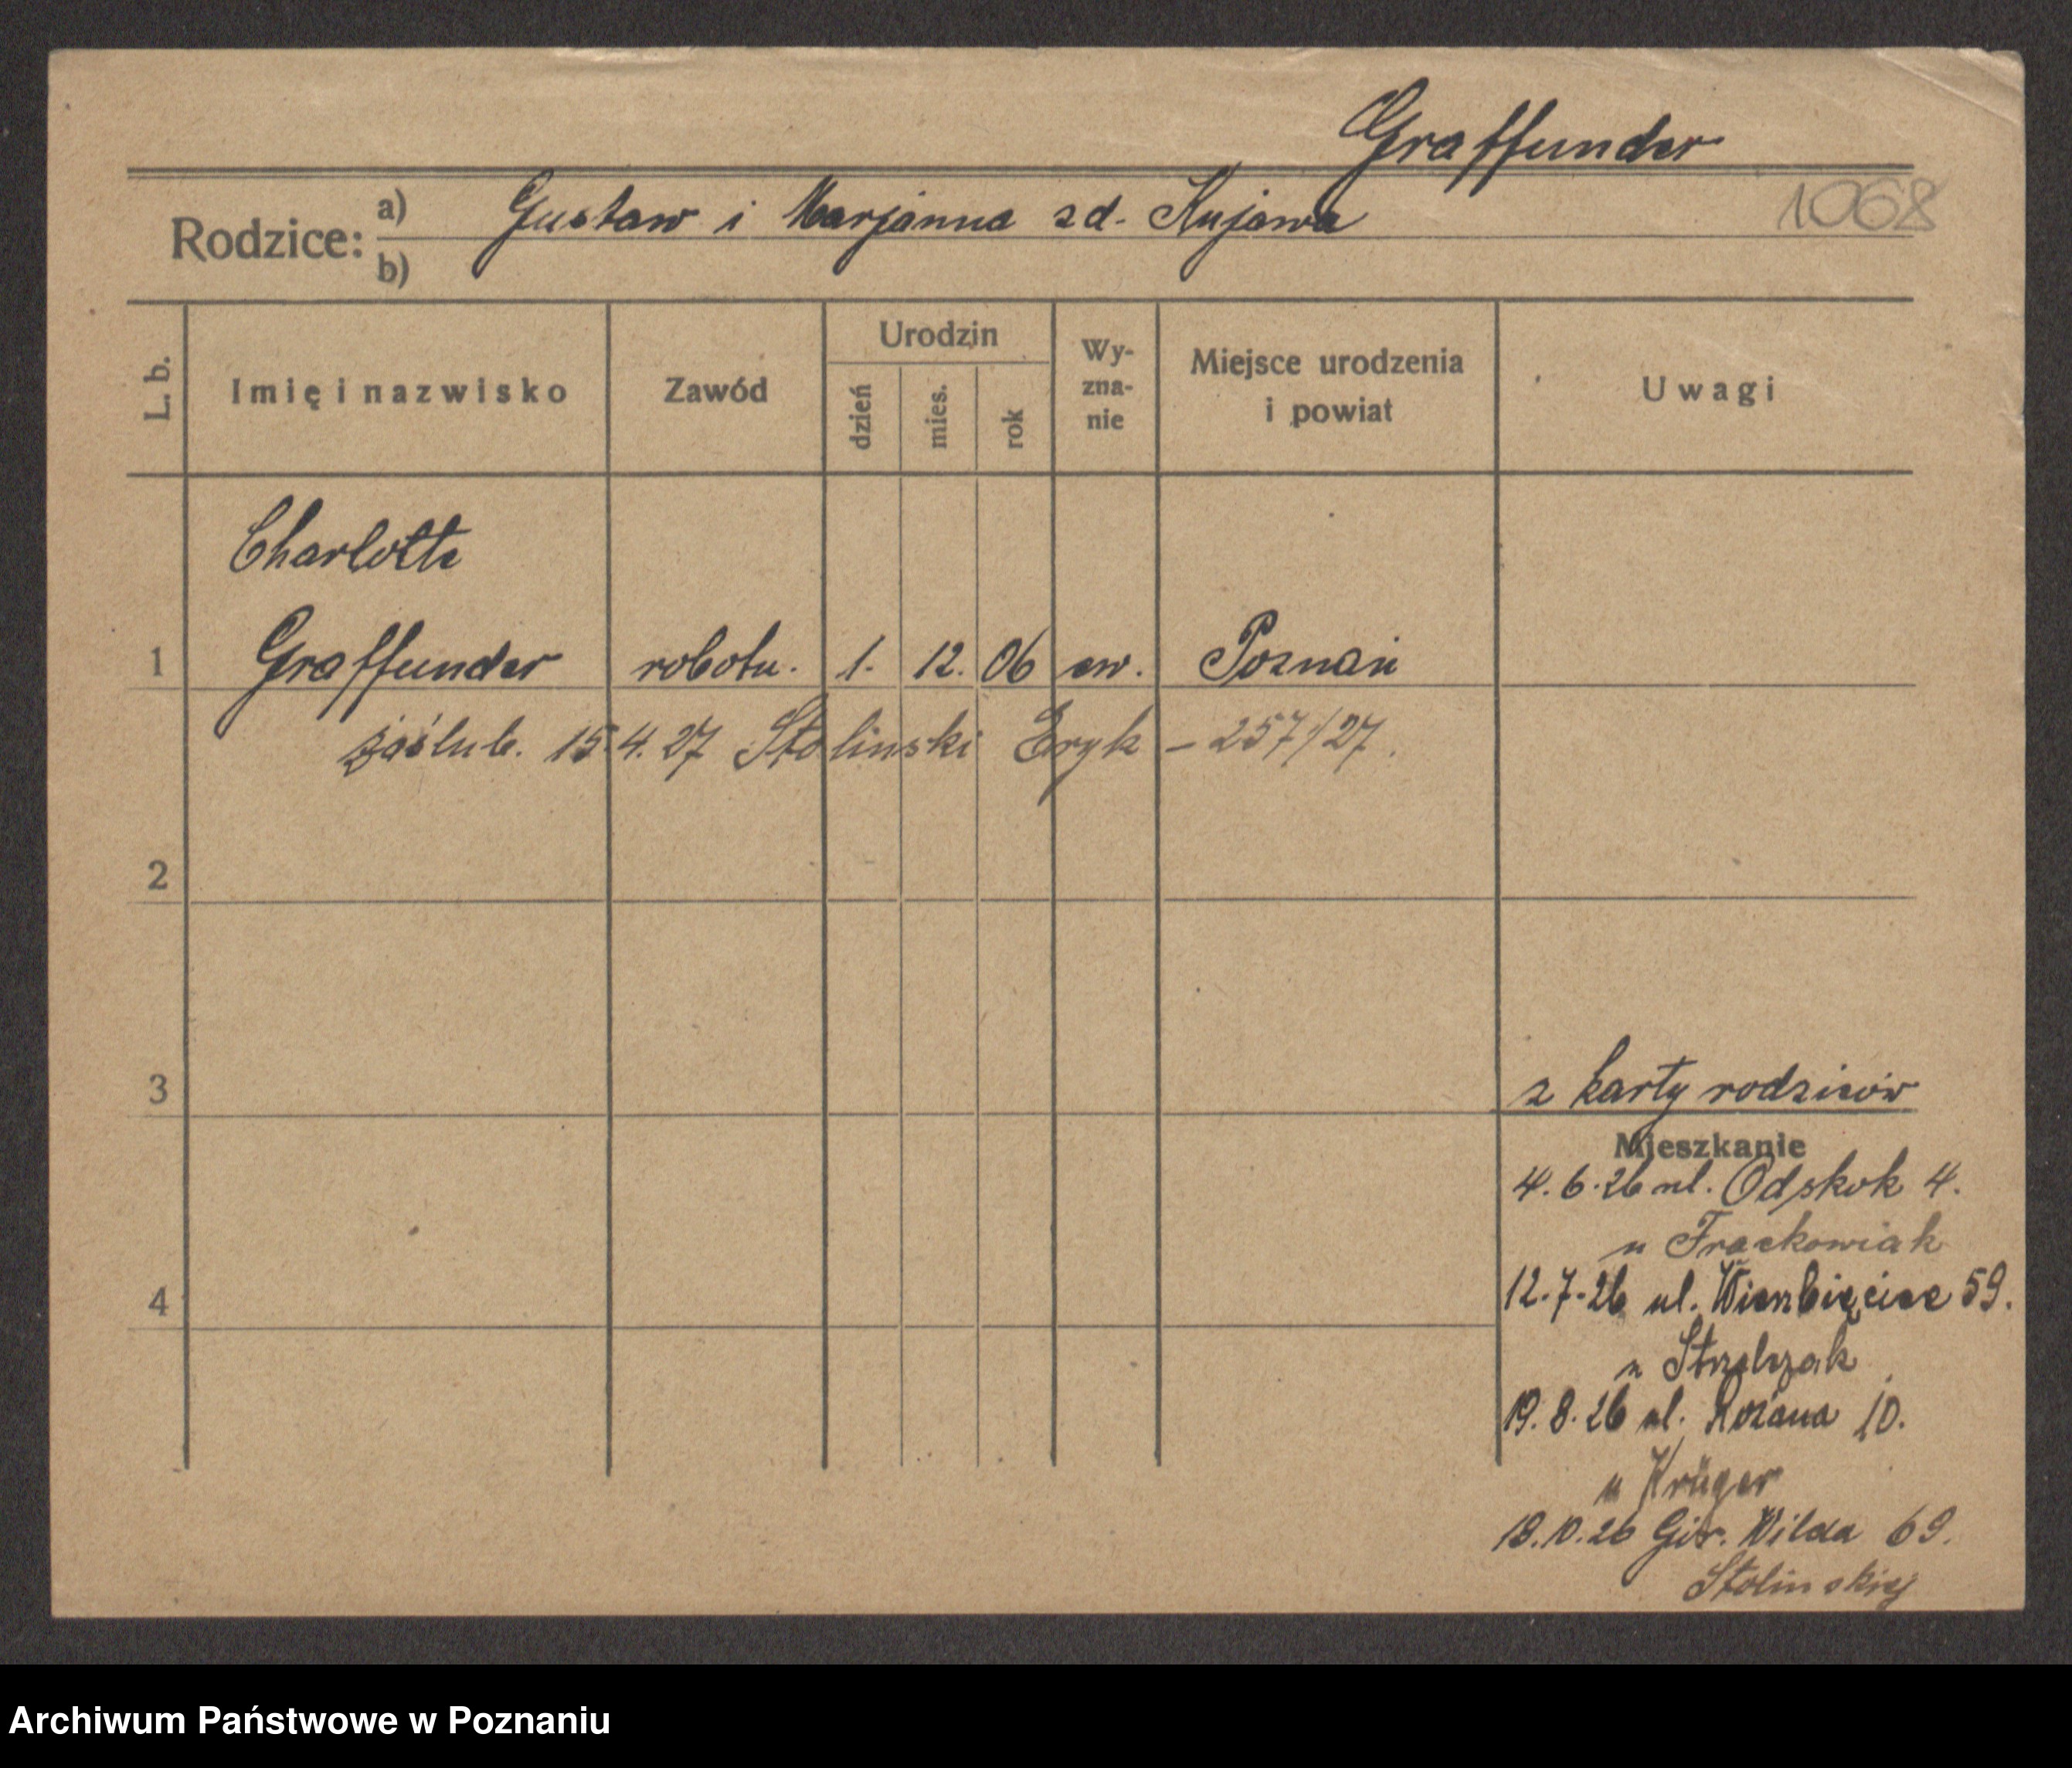 Graffunder
1068
Rodzice: a) Gustaw i Marjanna zd. Kujawa
b)
L. b.
Imię i nazwisko
Zawód
Urodzin
dzień
mies.
rok
Wy-
zna-
nie
Miejsce urodzenia
i powiat
Uwagi
Charlotte
1 Graffunder robotn. 1. 12. 06 ew. Poznań
zaślub. 15.4.27 Stolinski Eryk – 257/27.
2
3
z karty rodziców
Mieszkanie
4.6.26 ul. Odskok 4.
u Frackowiak
4
12.7.26 ul. Wierzbięcice 59.
u Strzelczak
19.8.26 ul. Różana 10.
u Krüger
19.10.26 Gór. Wilda 69.
Stolinskiej
Archiwum Państwowe w Poznaniu